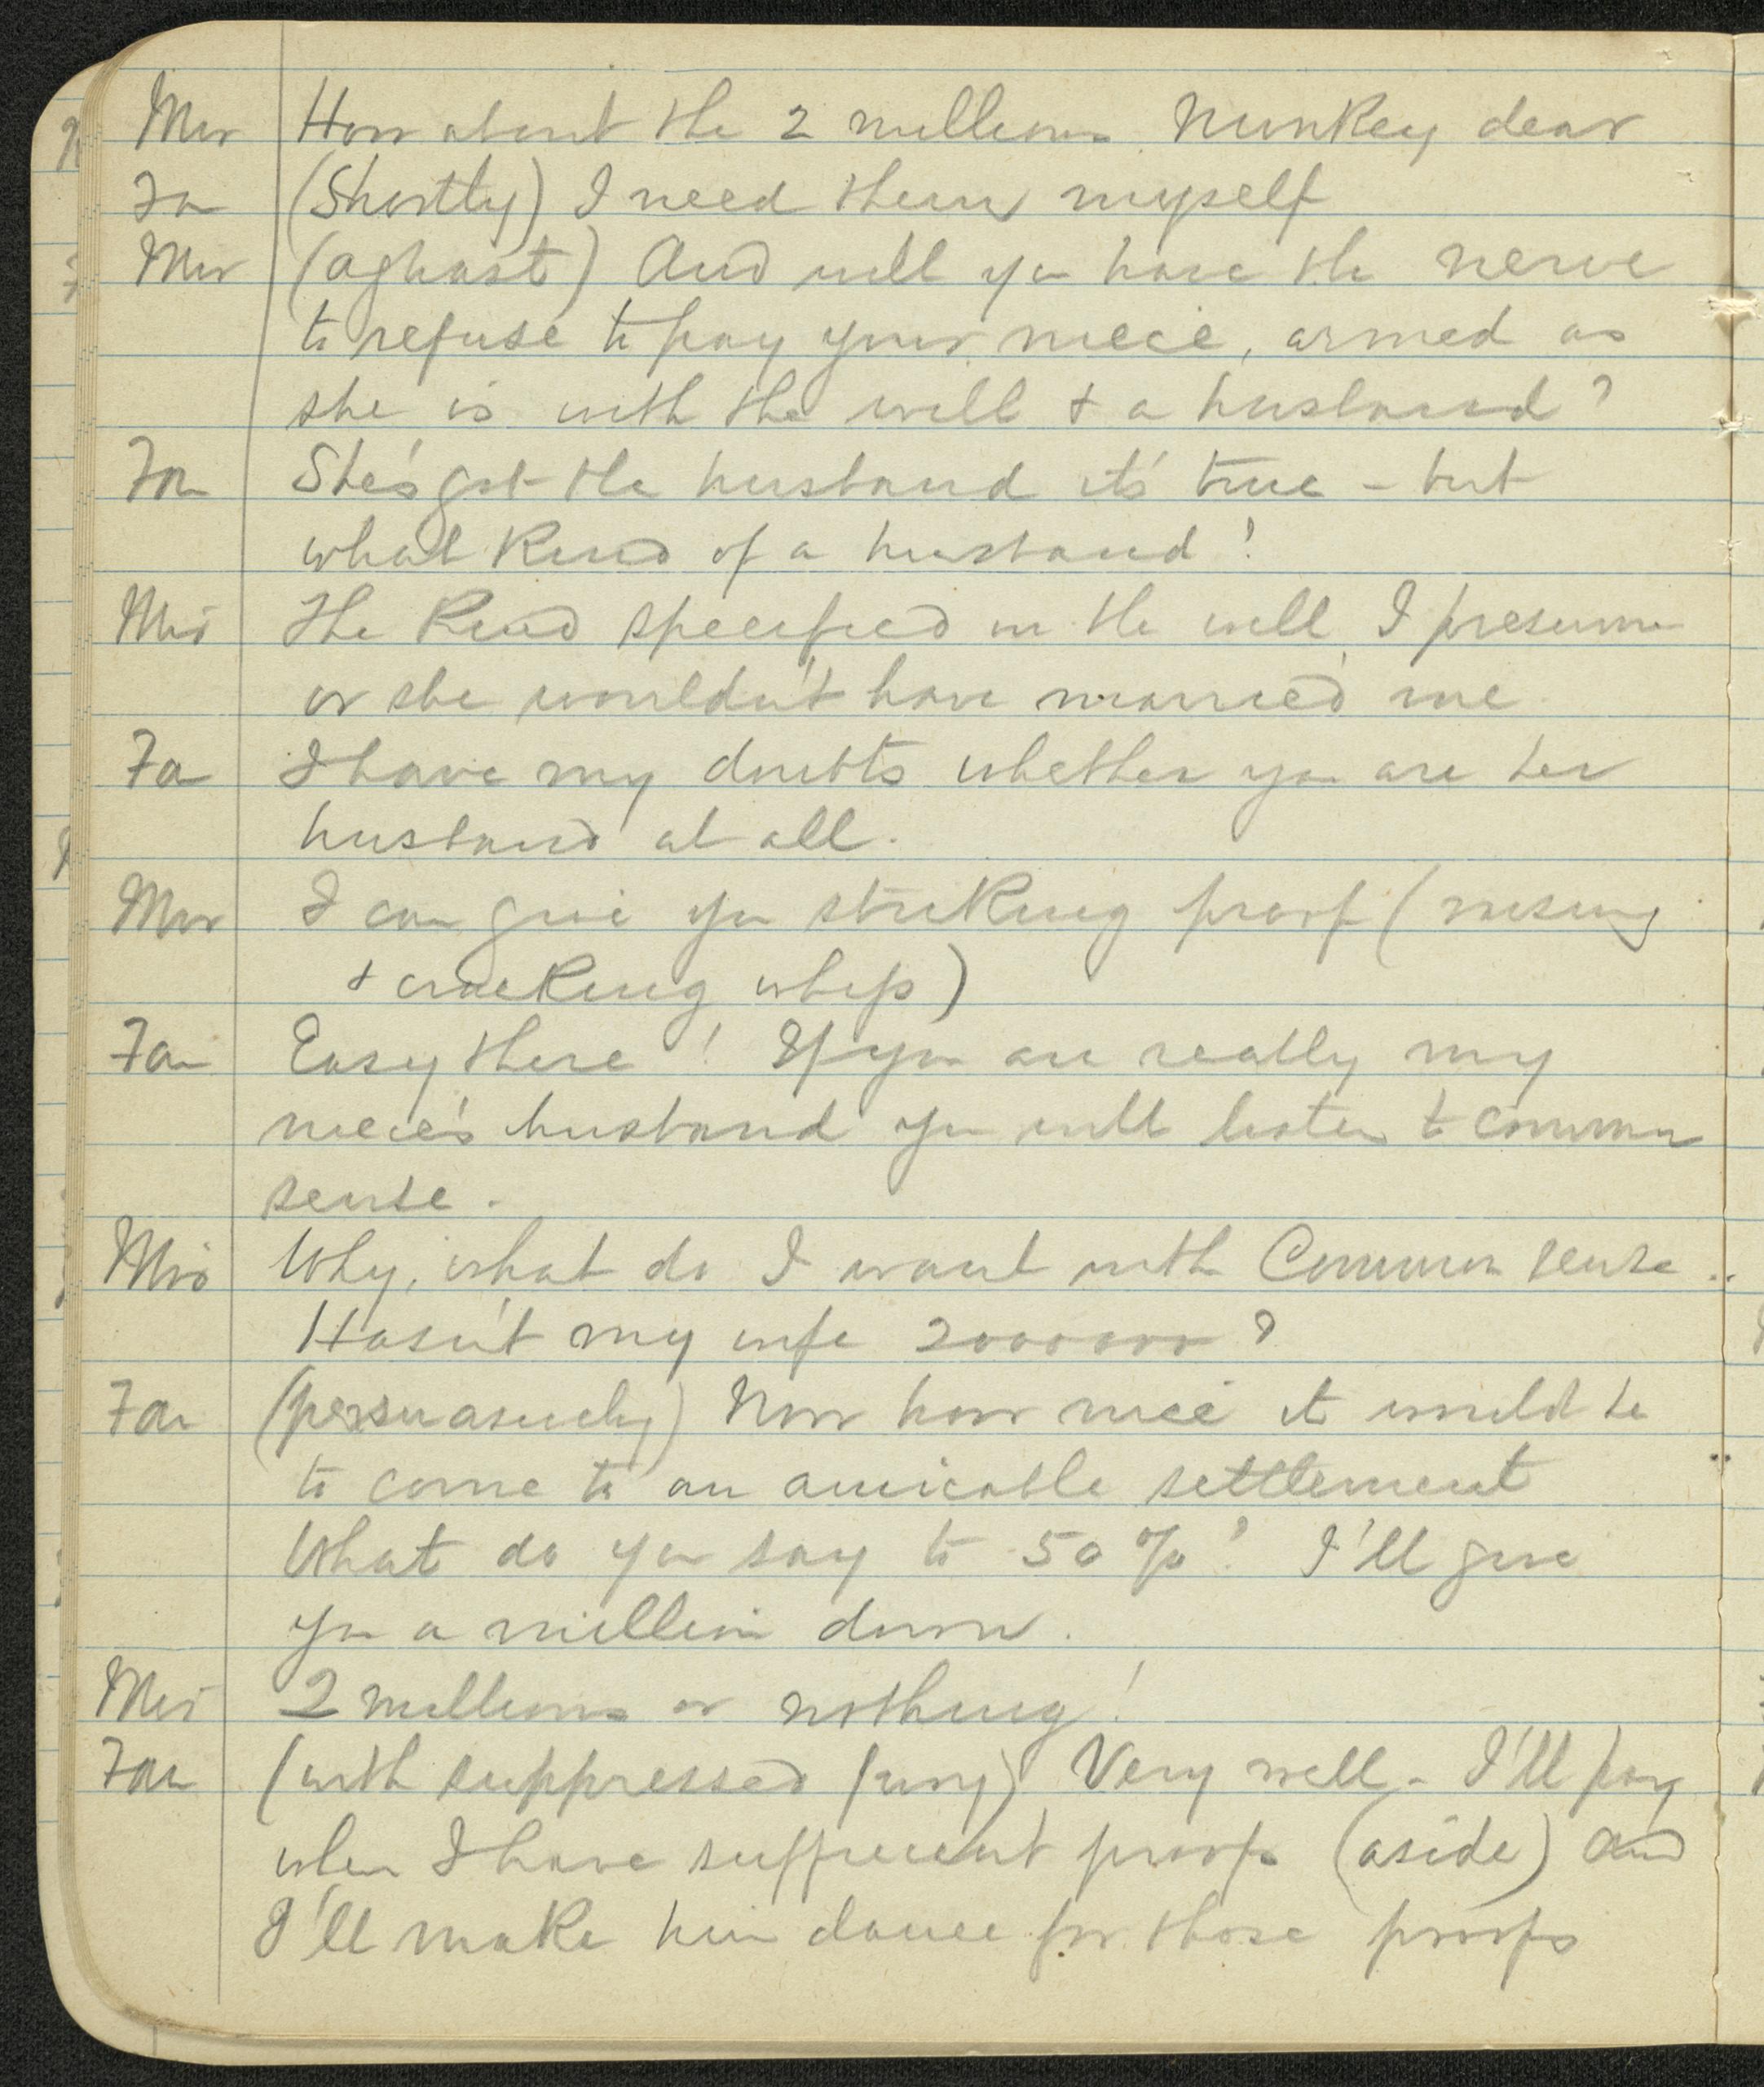 Mir How about the 2 millions Nunkey dear
Fa (Shortly) I need them myself
Mir (aghast) And will you have the nerve
to refuse to pay your niece, armed as
she is with the will + a husband?
Fa She's got the husband it's true - but
what kind of a husband!
Mir The kind specified in the will I presume
or she wouldn't have married me.
Fa I have my doubts whether you are her
husband at all.
Mir I can give you striking proof (rising
+ cracking whip)
Fa Easy there! If you are really my
niece's husband you will listen to common
sense.
Mir Why, what do I want with Common sense..
Hasn't my wife 2000000?
Fa (persuasively) Now how nice it would be
to come to an amicable settlement
What do you say to 50%? I'll give
you a million down.
Mir 2 millions or nothing!
Fa (with suppressed fury) Very well - I'll pay
when I have sufficient proofs (aside) and
I'll make him dance for those proofs